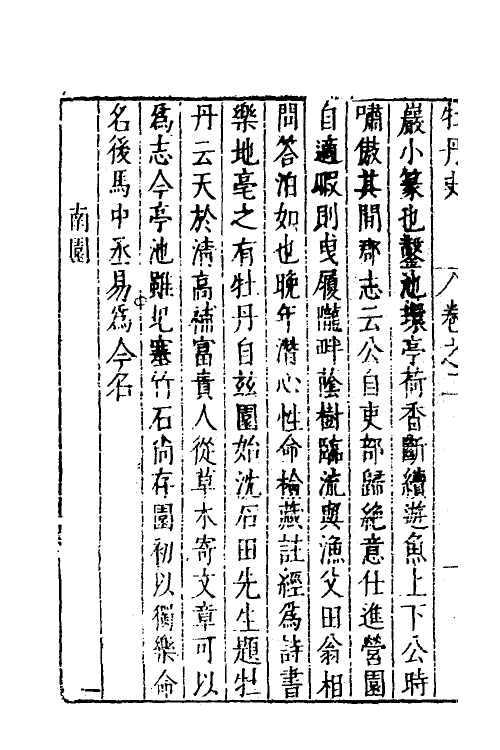 牡丹史　卷之二
巖小篆也鑿池環亭荷香斷續遊魚上下公時
嘯傲其間郡志云公自吏部歸絶意仕進營園
自適暇則曳履隴畔蔭樹臨流與漁父田翁相
問答泊如也晚年潛心性命檢藏註經爲詩書
樂地亳之有牡丹自玆園始沈石田先生題牡
丹云天於清高補富貴人從草木寄文章可以
爲志今亭池雖圮塞竹石尙存園初以獨樂命
名後馬中丞易爲今名
南園